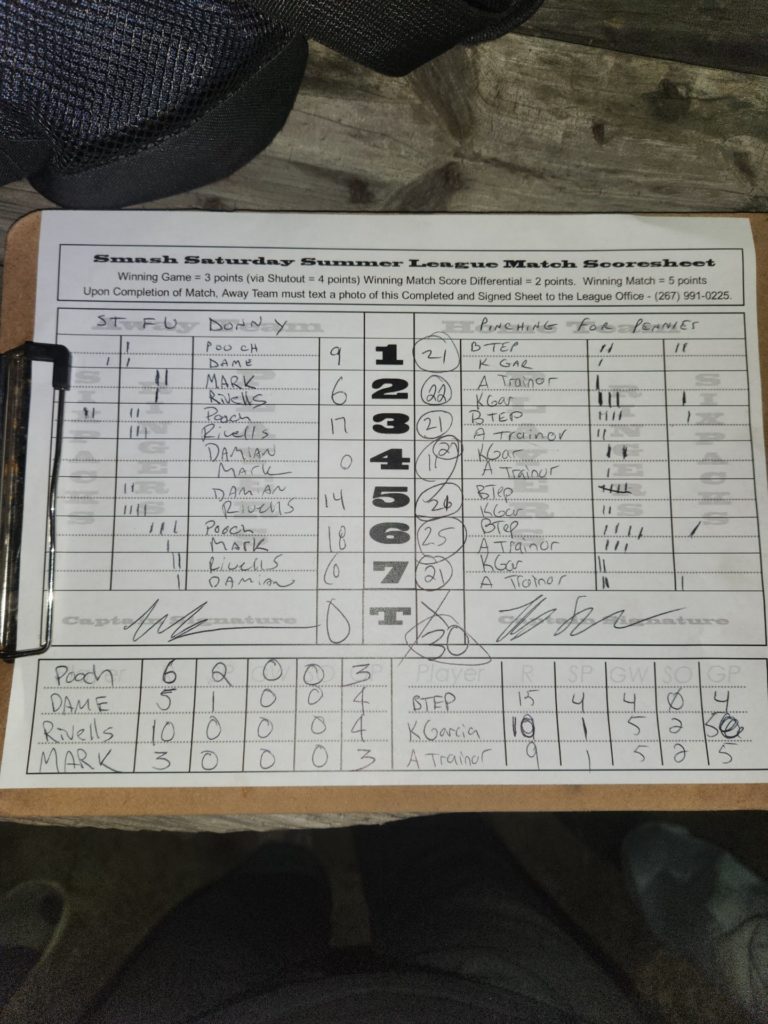 Smash Saturday Summer League Match Scoresheet
Winning Game = 3 points (via Shutout = 4 points) Winning Match Score Differential = 2 points. Winning Match = 5 points
Upon Completion of Match, Away Team must text a photo of this Completed and Signed Sheet to the League Office - (267) 991-0225.
ST FU DONNY PINCHING FOR PENNIES
POOCH 9 1 21 BTEP
DAME K GAR
MARK 6 2 22 A Trainor
Rivells KGar
Pooch 17 3 21 BTEP
Rivells A Trainor
DAMIAN 0 4 KGar
MARK A Trainor
DAMIAN 14 5 BTep
RIVELLS KGar
Pooch 18 6 25 BTep
MARK A Trainor
Rivells 7 21 KGar
DAMIAN A Trainor
Captain Signature 0 T 30 Captain Signature
Pooch 6 2 0 0 3 Player R SP GW SO GP
DAME 5 1 0 0 4 BTEP 15 4 4 0 4
Rivells 10 0 0 0 4 KGarcia 10 1 5 2 5
MARK 3 0 0 0 3 A Trainor 9 1 5 2 5